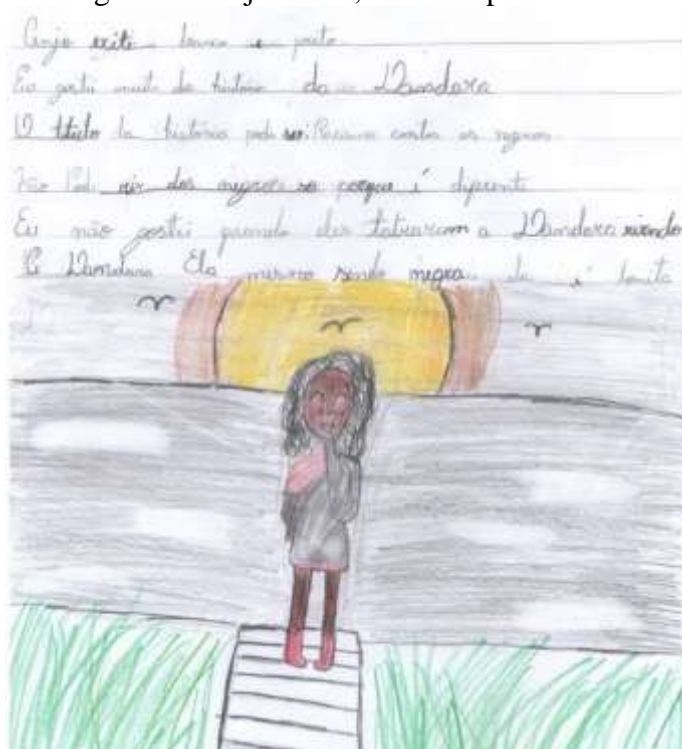 Anjo exite branco e preto
Eu gostei muito da história da Dandara
O titulo da história pode ser: Racismo contra os negros
Não Pode rir dos negros so porque é diferente
Eu não gostei quando eles a Dandara rindo
Dandara Ela mesmo sendo negra ela é bonita